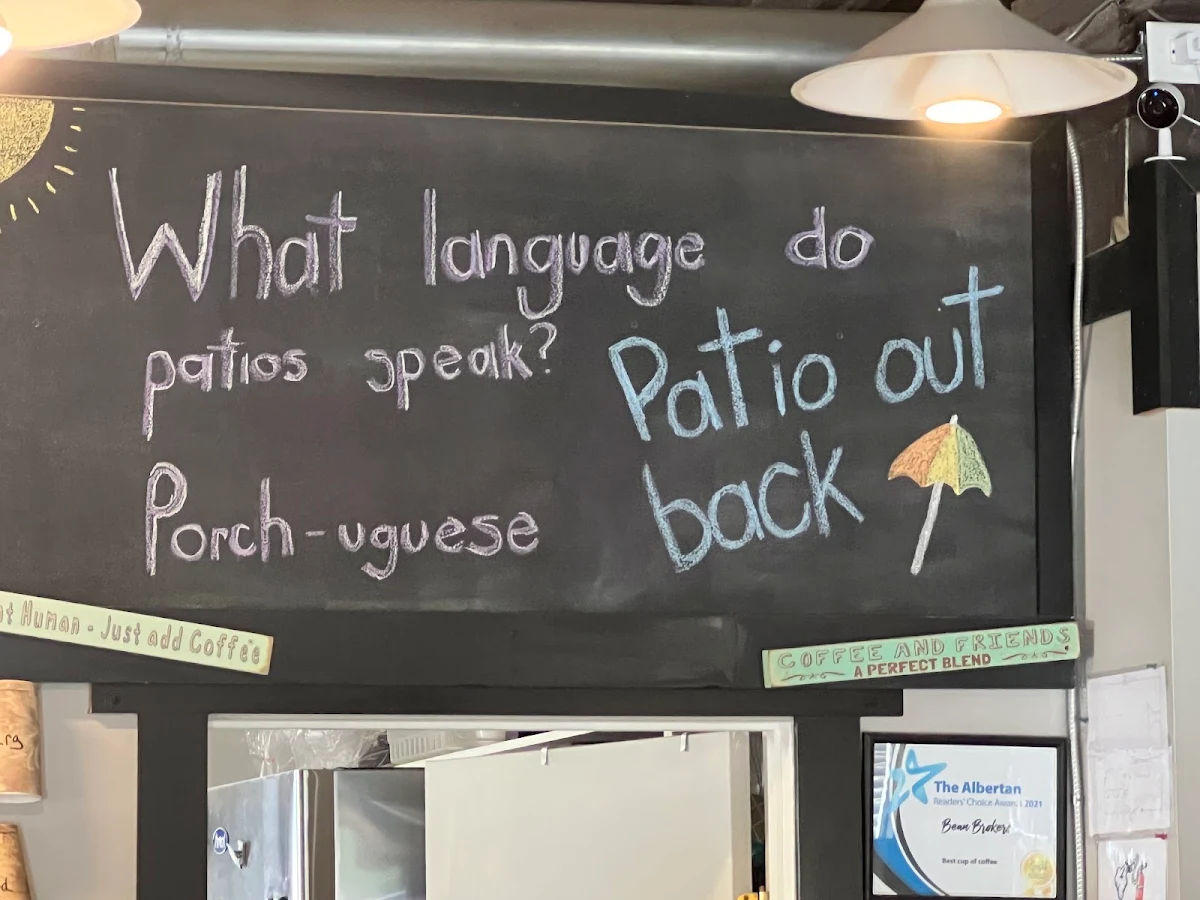 What language do
patios speak?
Porch-uguese
Patio out
back
Human - Just add Coffee
COFFEE AND FRIENDS
A PERFECT BLEND
The Albertan
Readers' Choice Awards 2021
Bean Brokers
Best cup of coffee